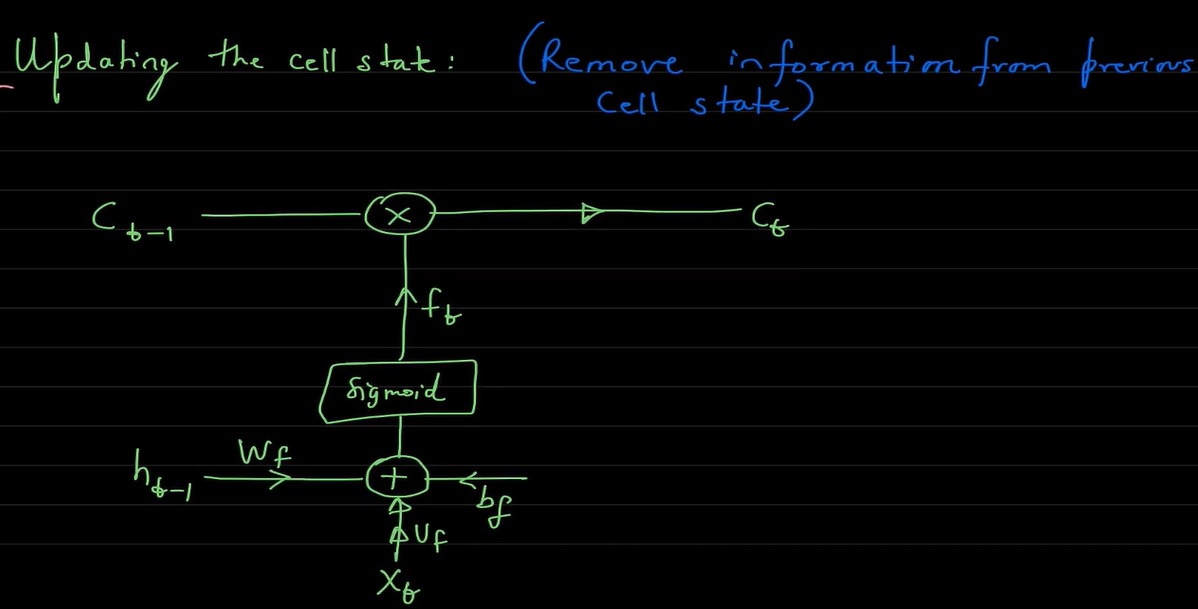 Updating the cell state: (Remove information from previous
cell state)
C t-1 × C t
f t
Sigmoid
W f
h t-1 + b f
U f
X t